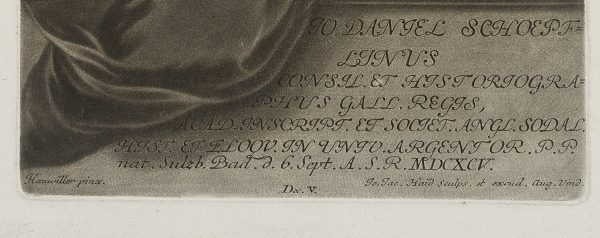 IO. DANIEL SCHOEPF=
LINUS
CONSIL. ET HISTORIOGRA=
PHUS GALL. REGIS,
ACAD. INSCRIPT. ET SOCIET. ANGL. SODAL.
HIST. ET ELOQV. IN UNIV. ARGENTOR. P. P.
nat. Sulzb. Bad. d. 6. Sept. A. S. R. MDCXCV.
pinx.
Dec. V.
Jo. Jac. Haid sculps. et excud. Aug. Vind.